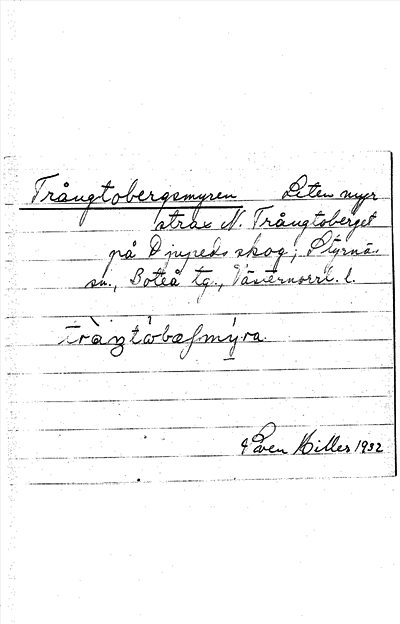 Trångtobergsmyren Liten myr
strax N. Trångtoberget
på Djupeds skog, Styrnäs
sn., Boteå tg., Västernorrl. l.
Sven Hiller 1932